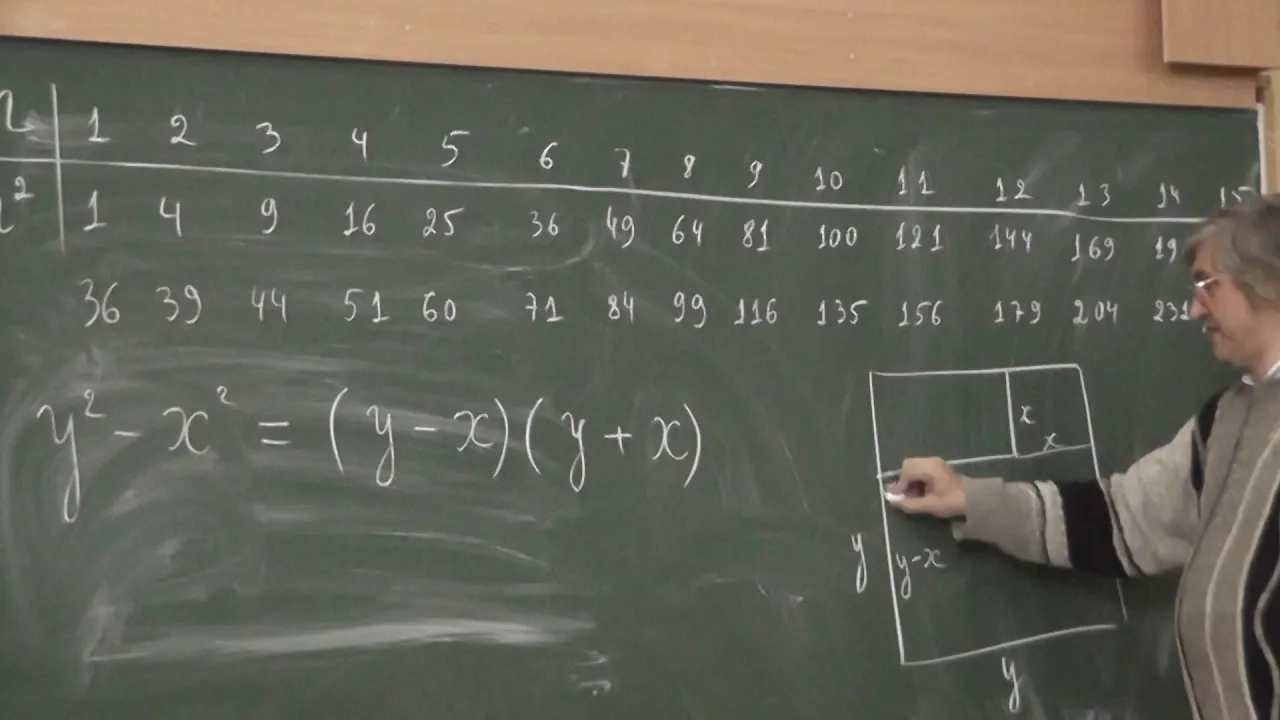 n 1 2 3 4 5 6 7 8 9 10 11 12 13 14 15
n² 1 4 9 16 25 36 49 64 81 100 121 144 169 19
36 39 44 51 60 71 84 99 116 135 156 179 204 231
y² - x² = (y - x)(y + x)
x
x
y
y-x
y